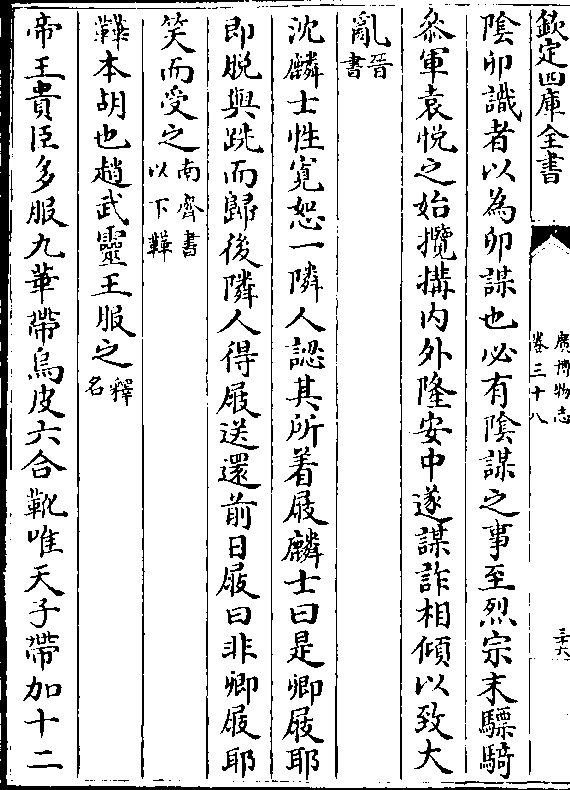 欽定四庫全書
廣博物志
卷三十八
三六
陰卯識者以為卯謀也必有陰謀之事至烈宗末驃騎
叅軍袁悦之始攬搆内外隆安中遂謀詐相傾以致大
亂晉書
沈麟士性寛恕一隣人認其所着屐麟士曰是卿屐耶
即脱與跣而歸後隣人得屐送還前日屐曰非卿屐耶
笑而受之南齊書以下鞾
鞾本胡也趙武靈王服之釋名
帝王貴臣多服九華帶烏皮六合靴唯天子帶加十二